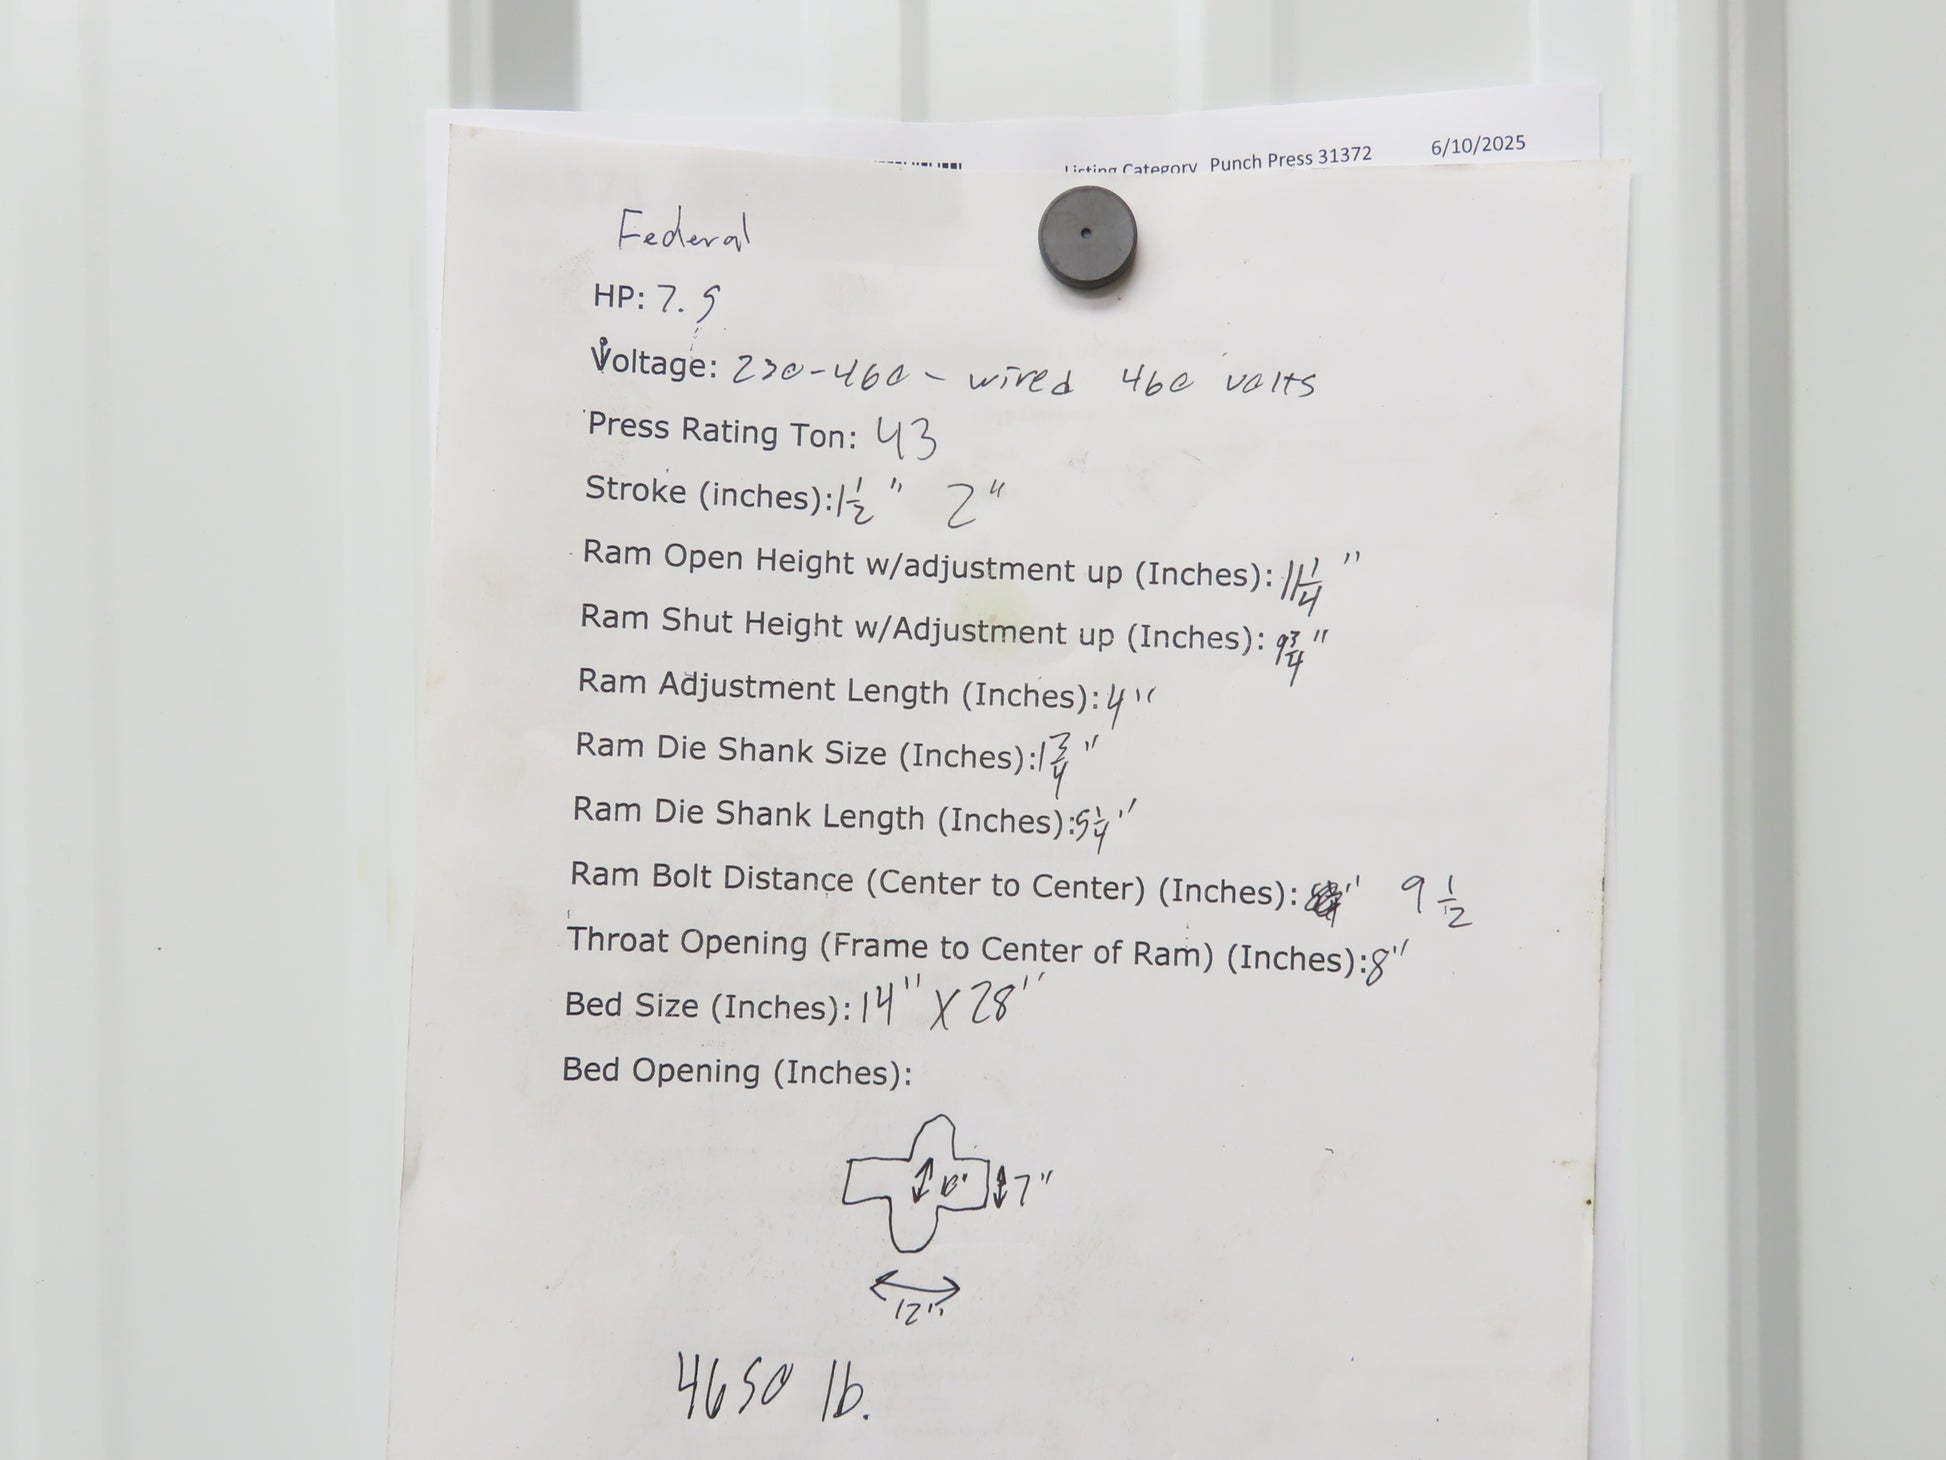 Listing Category Punch Press 31372 6/10/2025
Federal
HP: 7.5
Voltage: 230-460 - wired 460 volts
Press Rating Ton: 43
Stroke (inches): 1 1/2 " 2"
Ram Open Height w/adjustment up (Inches): 11 1/4 "
Ram Shut Height w/Adjustment up (Inches): 9 3/4 "
Ram Adjustment Length (Inches): 4"
Ram Die Shank Size (Inches): 1 3/4 "
Ram Die Shank Length (Inches): 5 1/4 "
Ram Bolt Distance (Center to Center) (Inches): " 9 1/2
Throat Opening (Frame to Center of Ram) (Inches): 8"
Bed Size (Inches): 14" X 28"
Bed Opening (Inches):
7"
12"
4650 lb.